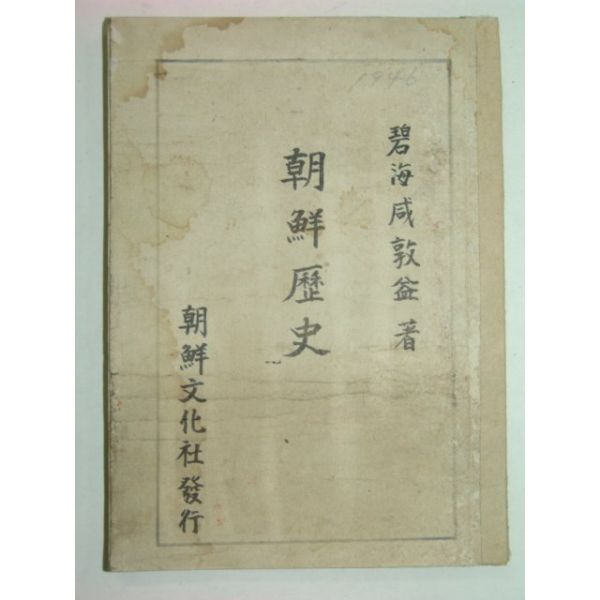 1946
碧海咸敦益 著
朝鮮歷史
朝鮮文化社發行